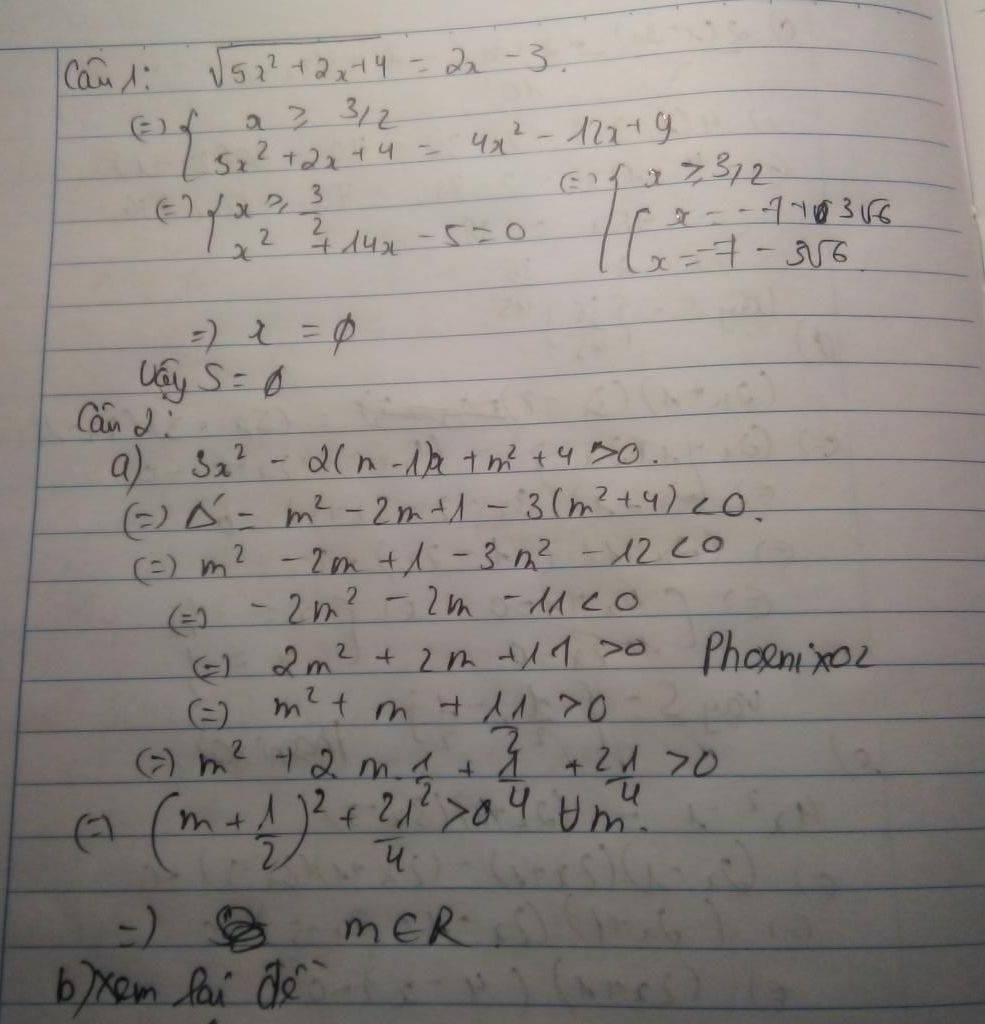 Câu 1: √5x² + 2x + 4 = 2x - 3.
(=) { x ≥ 3/2
5x² + 2x + 4 = 4x² - 12x + 9
(=) { x ≥ 3/2
x² + 14x - 5 = 0
(=) { x ≥ 3/2
[ x = -7 + 3√6
x = -7 - 3√6
=) x = ϕ
Vậy S = ϕ
Câu 2:
a) 3x² - 2(m - 1)x + m² + 4 > 0.
(=) Δ' = m² - 2m + 1 - 3(m² + 4) < 0.
(=) m² - 2m + 1 - 3m² - 12 < 0
(=) - 2m² - 2m - 11 < 0
(=) 2m² + 2m + 11 > 0 Phoenixoz
(=) m² + m + 11/2 > 0
(=) m² + 2 m. 1/2 + 1/4 + 21/4 > 0
(=) (m + 1/2)² + 21/4 > 0 ∀m.
=) m ∈ R
b) xem lại đề